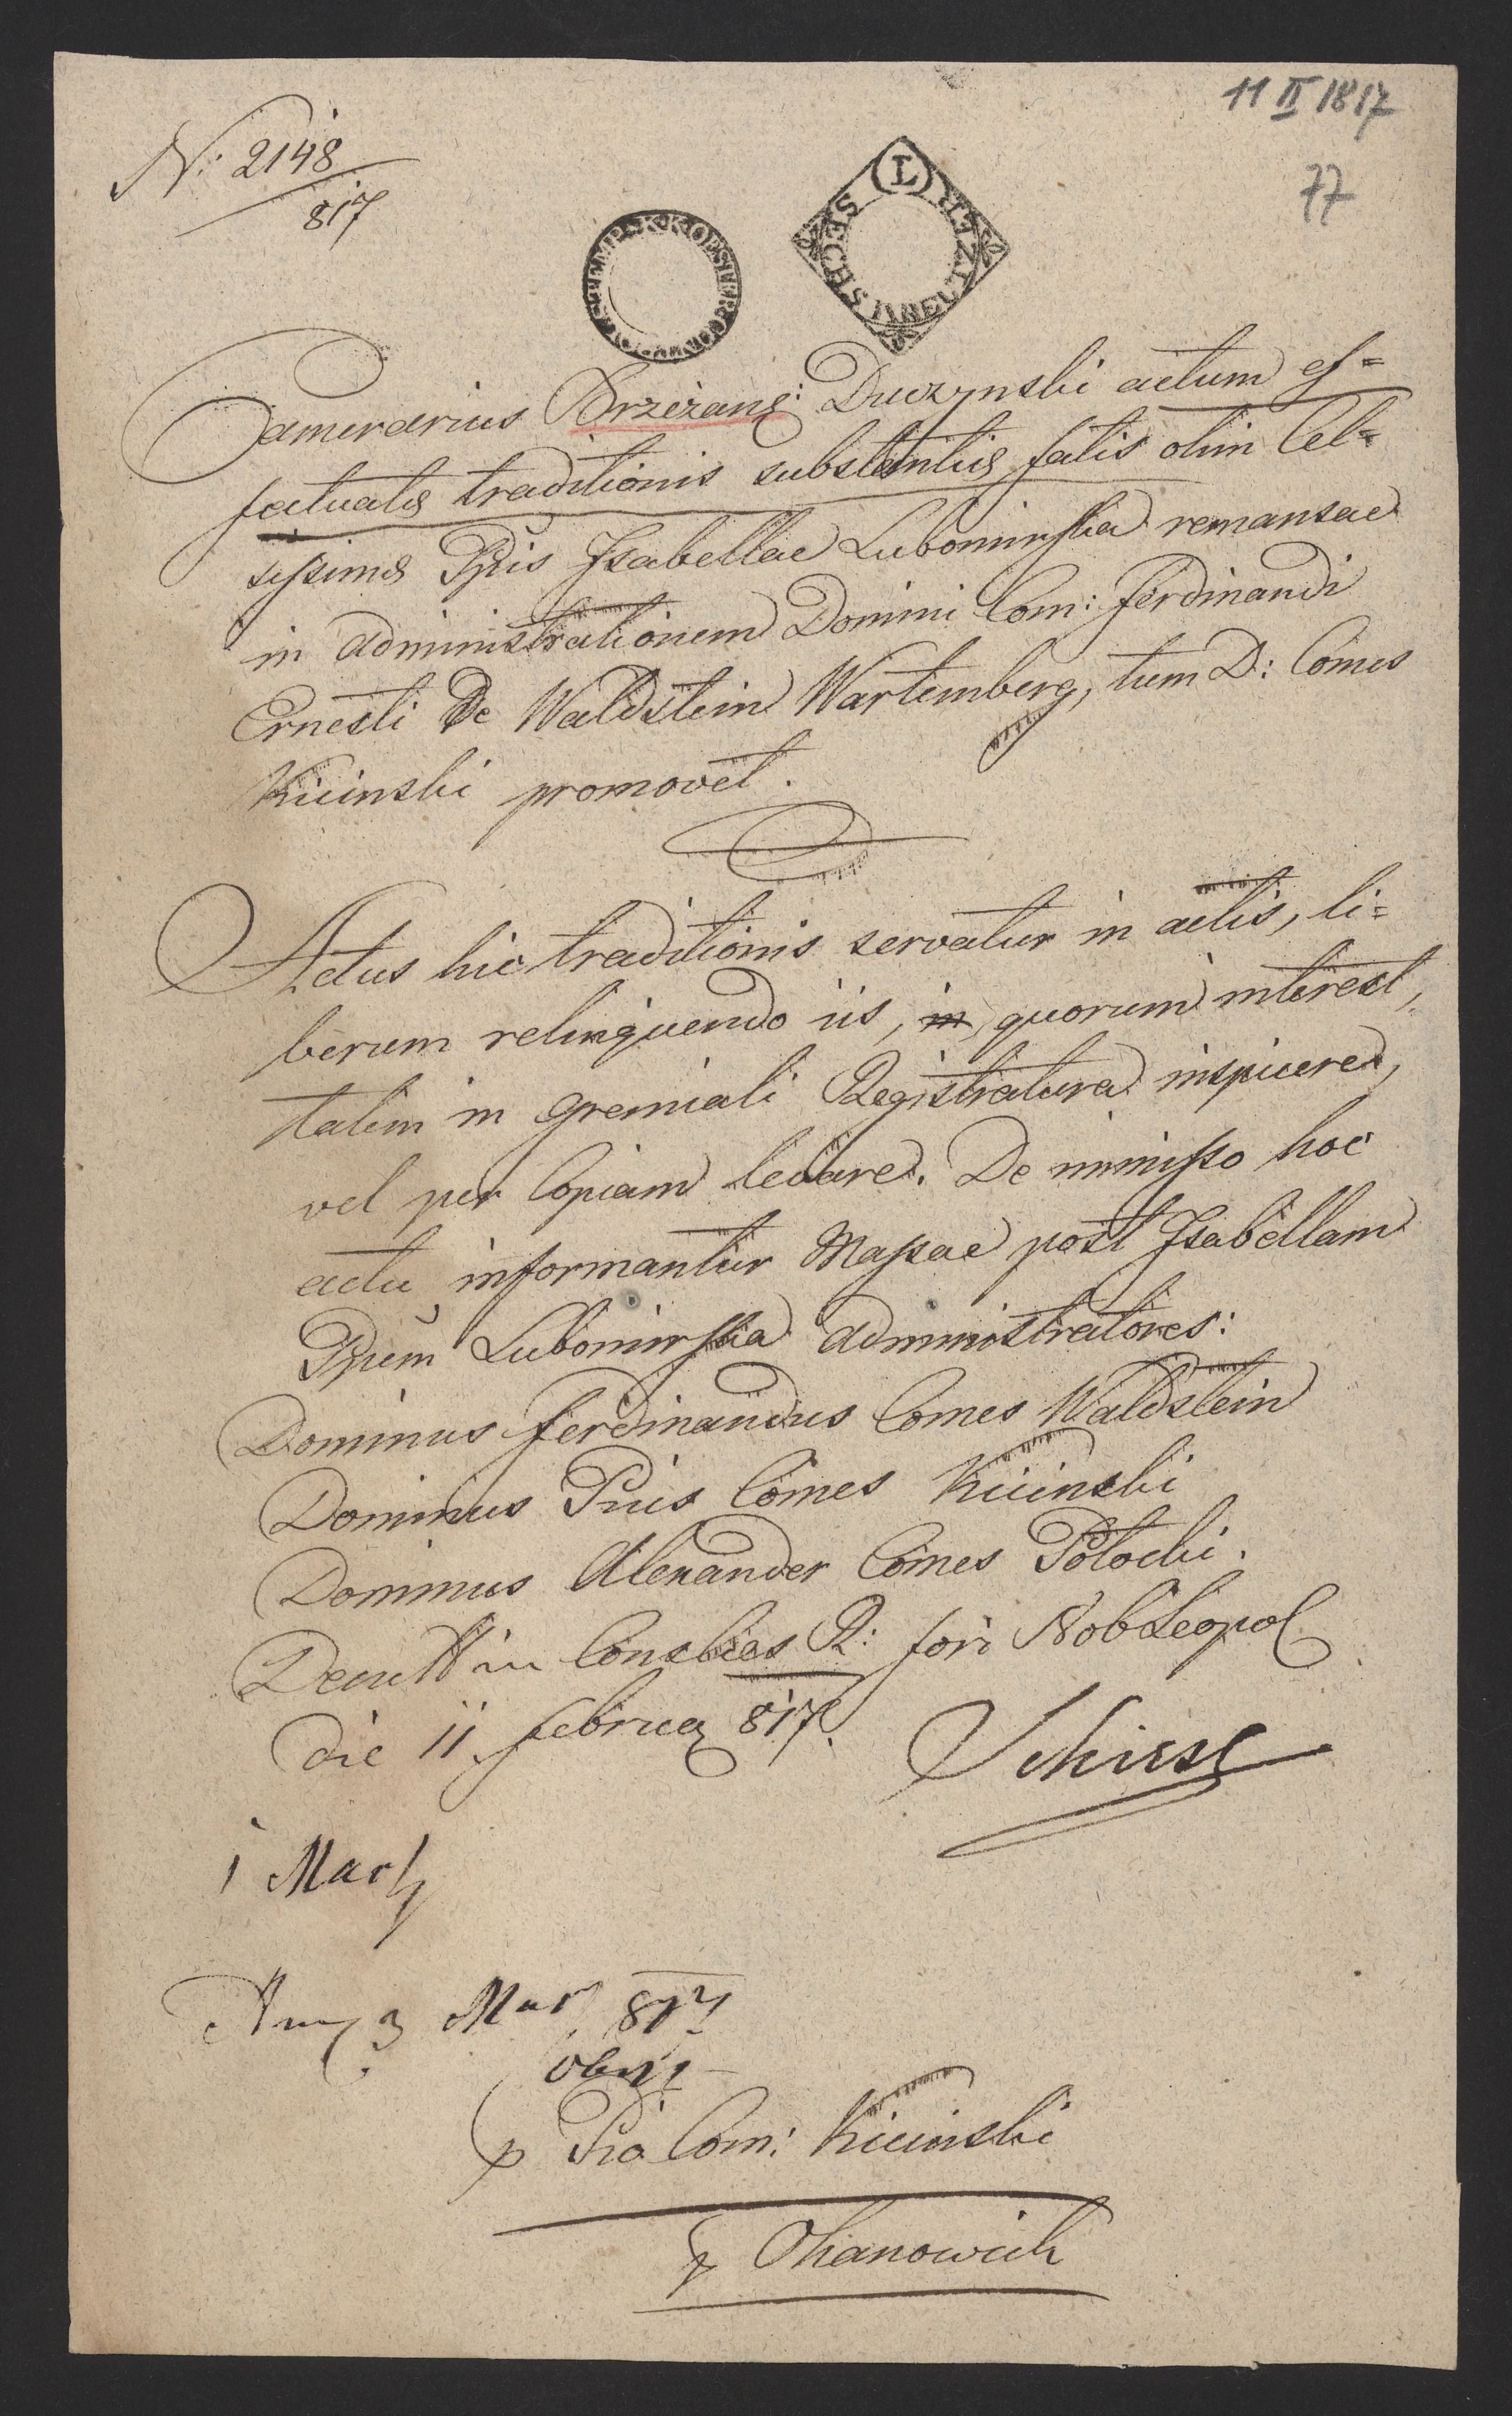 11 II 1817
77
N: 2148
817
K. K. OESTER
L
SECHS KREUTZER
Camerarius Brzeżans: Duczynski actum ef=
fectualis traditionis substantiis fatis olim Cel=
sissimae Ppis Isabellae Lubomirska remansae
in administrationem Domini Com: Ferdinandi
Ernesti De Waldstein Wartemberg, tum D: Comes
Kicinski promovet.
Actus hic traditionis servatur in actis, li=
berum relinquendo iis, in quorum interest,
talem in gremiali Registratura inspicere,
vel per Copiam levare. De immisso hoc
actu informantur Massae post Isabellam
Ppem Lubomirska administratores:
Dominus Ferdinandus Comes Waldstein
Dominus Pius Comes Kicinski
Dominus Alexander Comes Potocki.
in R: fori Nob Leopol
die 11 Februar 817.
1 Mart
3 Mar 817
p Pio Com: Kicinski
p Ohanowich